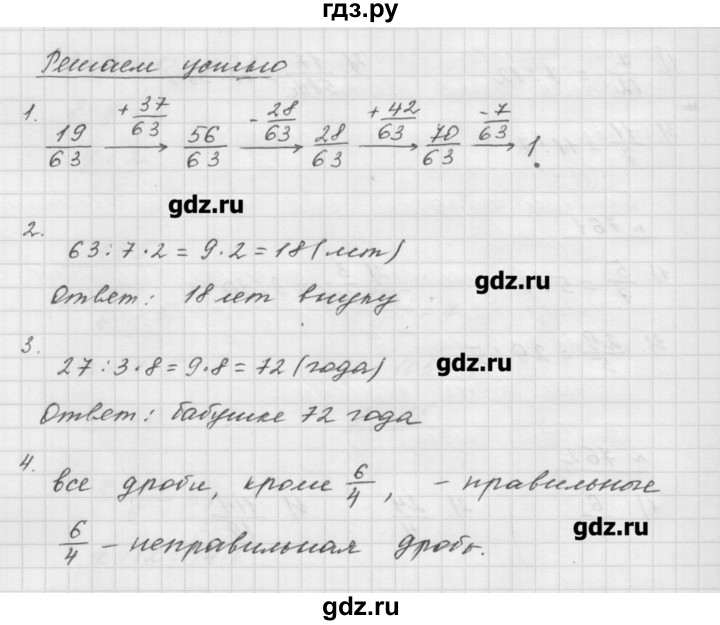 гдз.ру
Решаем устно
1. 19/63 + 37/63 → 56/63 - 28/63 → 28/63 + 42/63 → 70/63 - 7/63 → 1.
gdz.ru
2.
63 : 7 · 2 = 9 · 2 = 18 (лет)
gdz.ru
Ответ: 18 лет внуку
3.
27 : 3 · 8 = 9 · 8 = 72 (года)
gdz.ru
Ответ: бабушке 72 года
4.
все дроби, кроме 6/4, - правильные
gdz.ru
6/4 - неправильная дробь.
gdz.ru